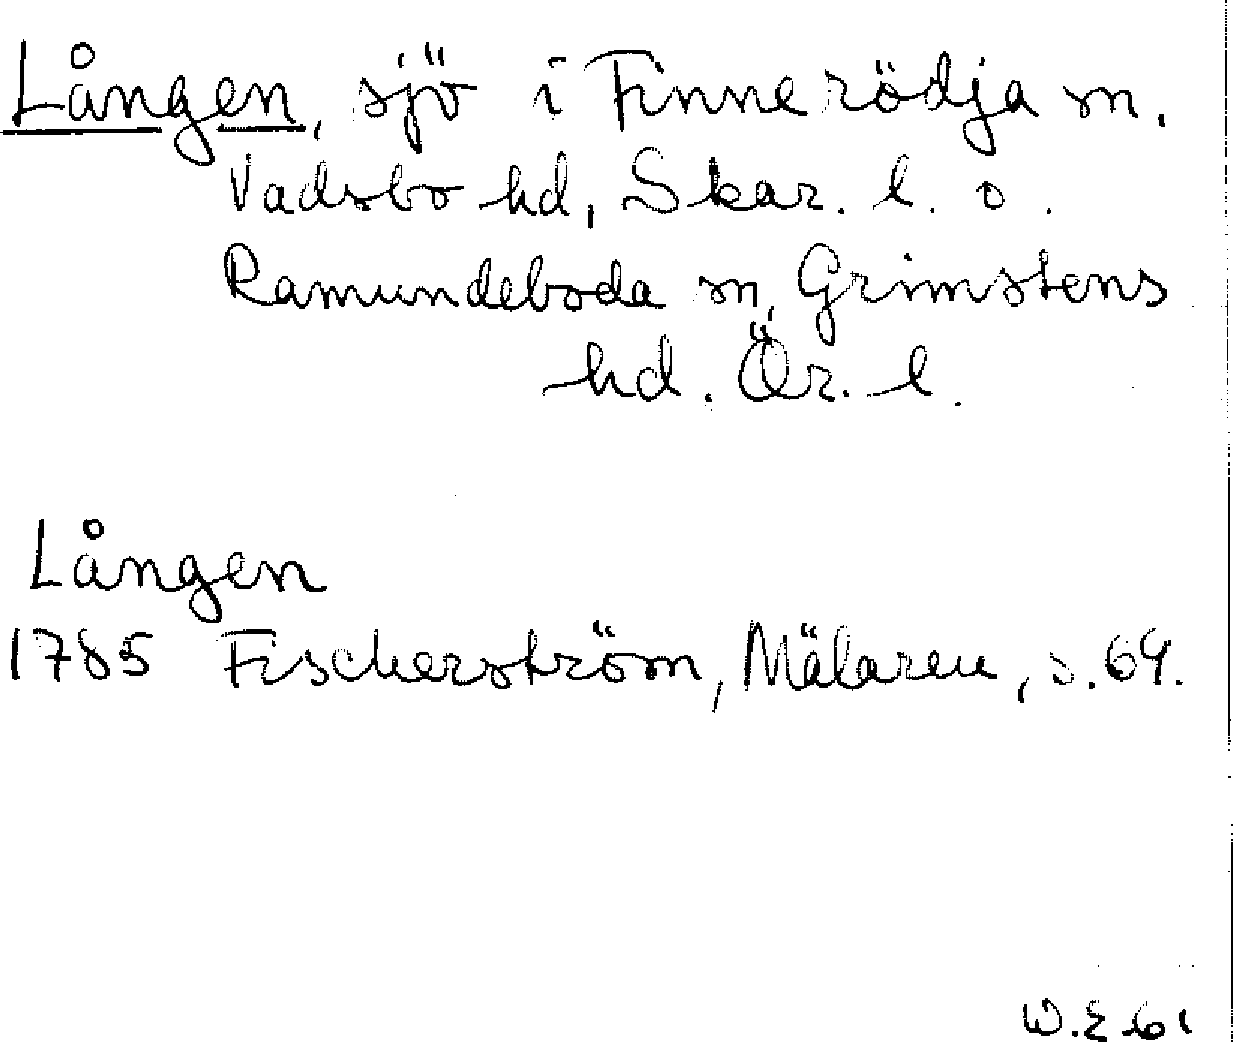 Lången, sjö i Finnerödja sn.
Vadsbo hd, Skar. l. o.
Ramundeboda sn, Grimstens
hd. Ör. l.
Lången
1785 Fischerström, Mälaren, s. 69.
W.E 61